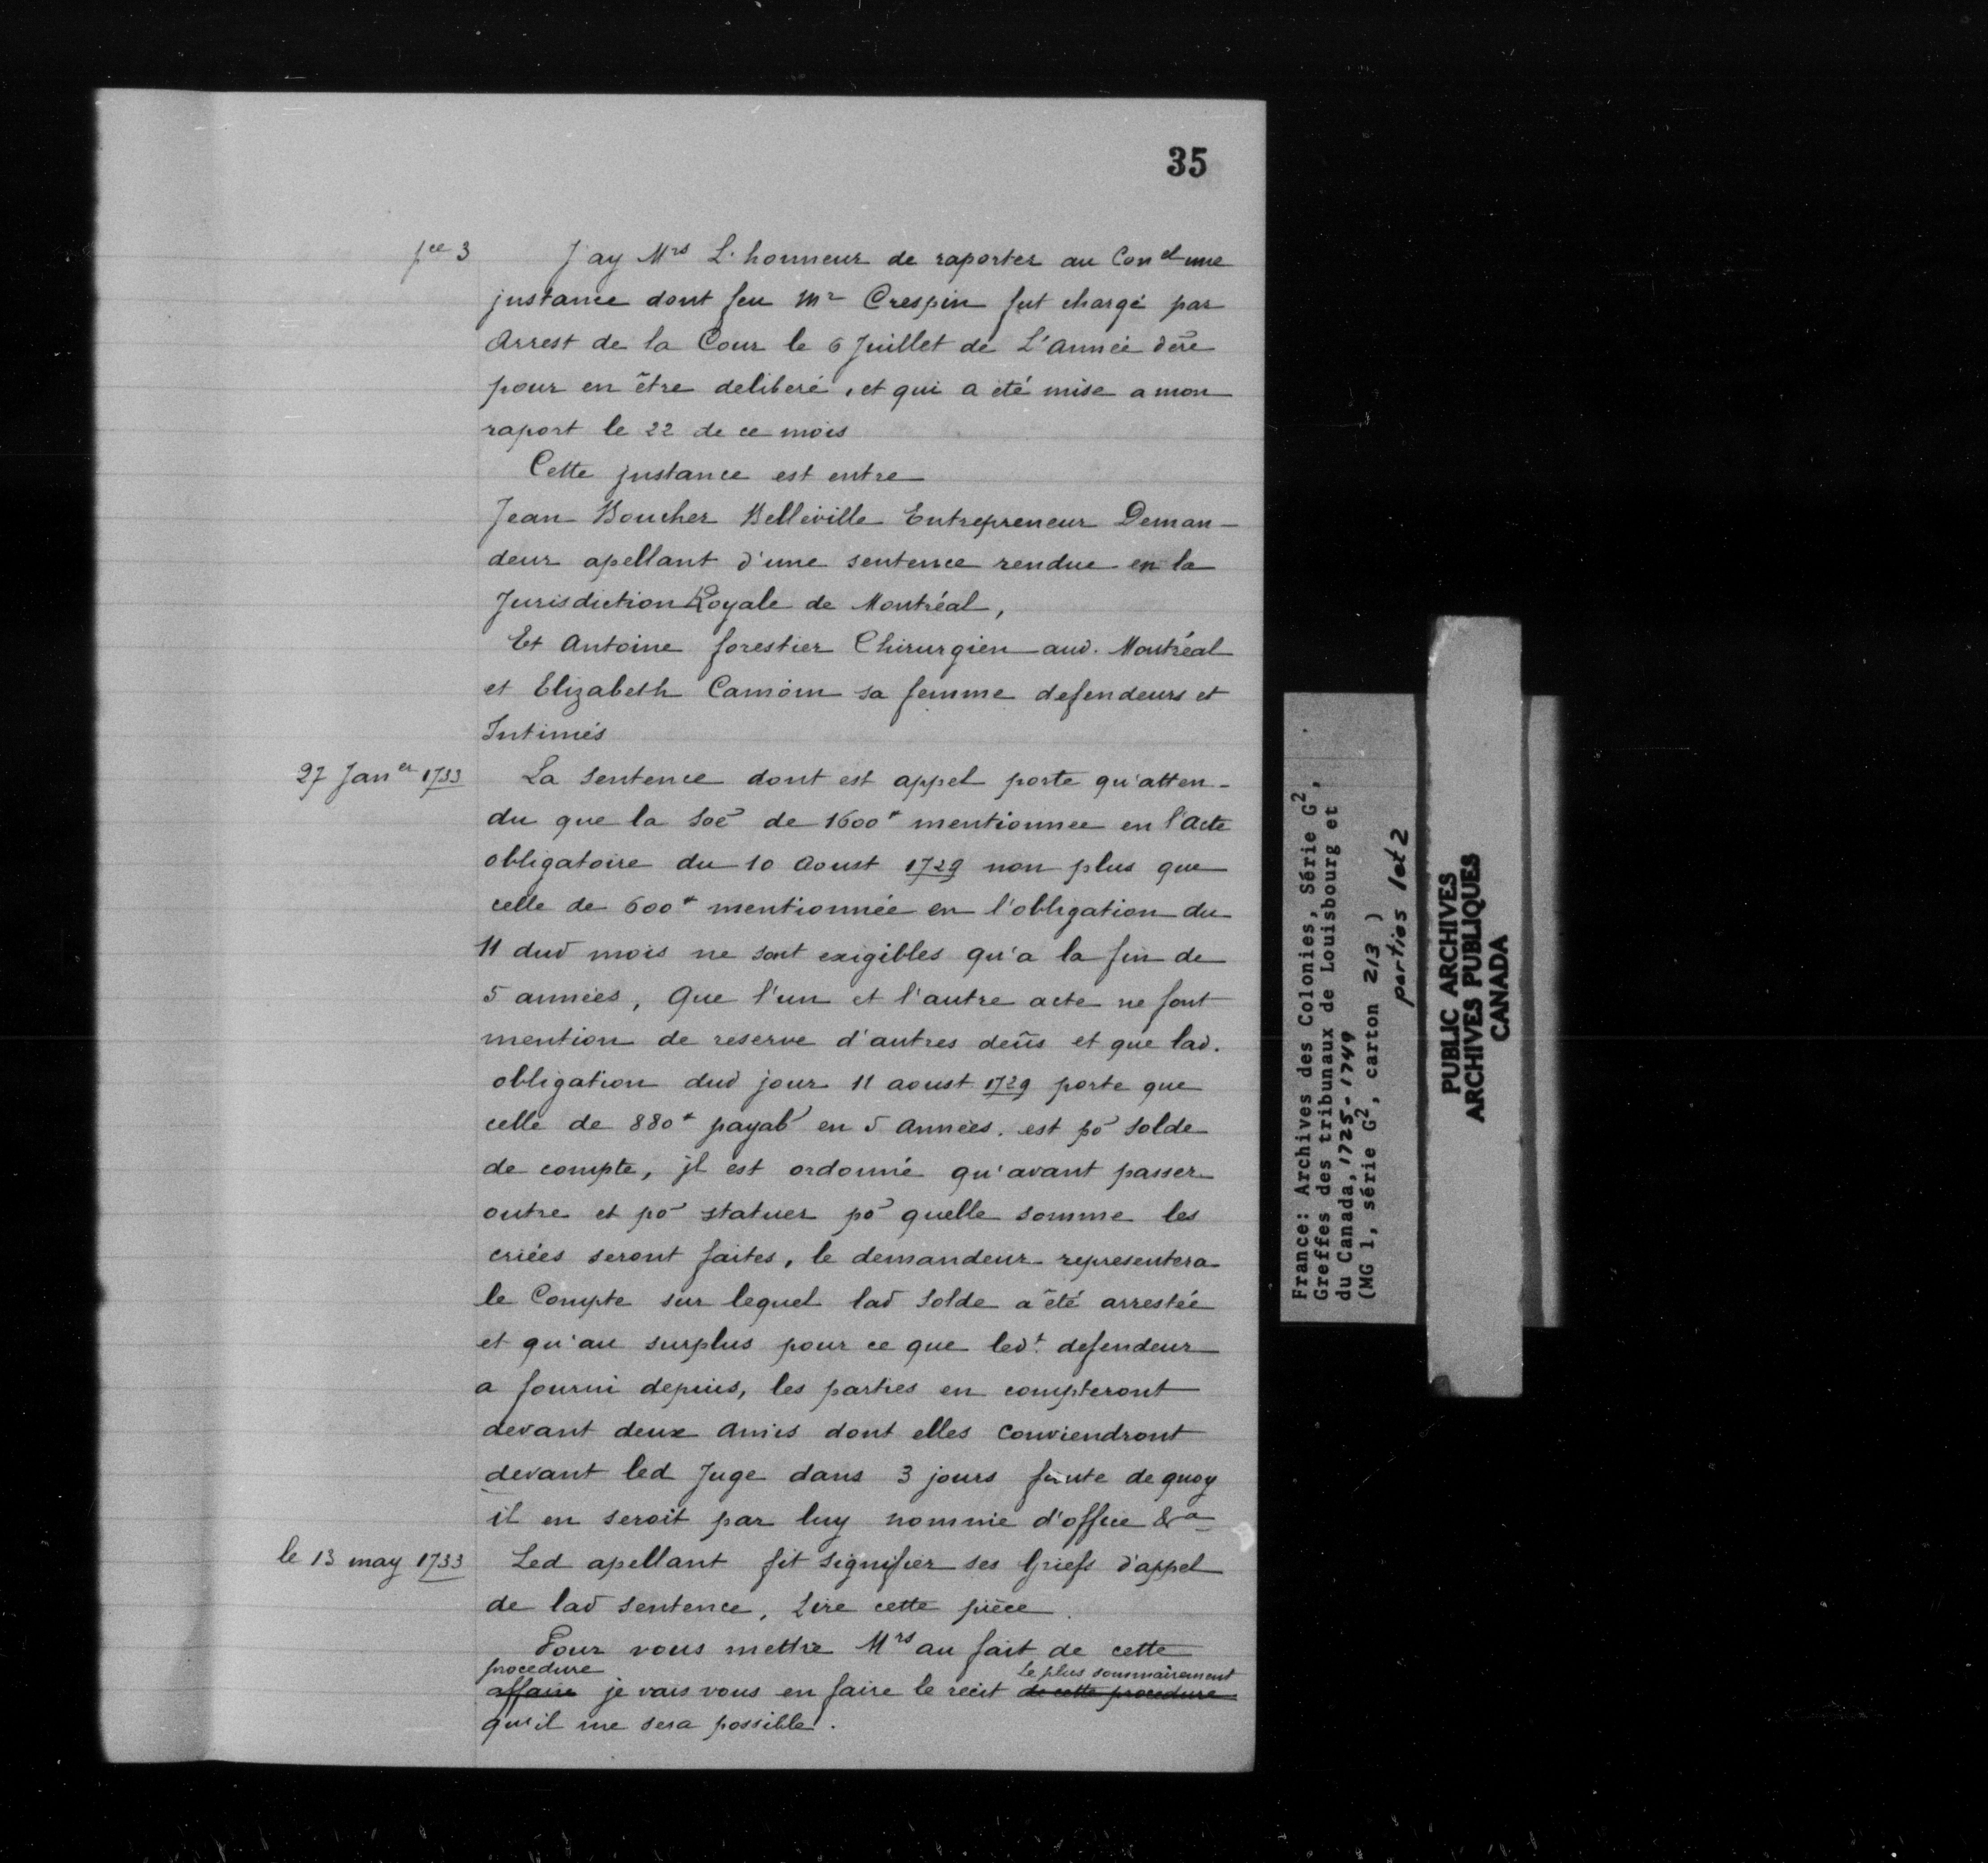 35
pce 3
J'ay Mrs L'honneur de raporter au Conel une
jnstance dont feu Mr Crespin fut chargé par
Arrest de la Cour le 6 Juillet de L'année dēre
pour en être deliberé, et qui a eté mise a mon
raport le 22 de ce mois
Cette jnstance est entre
Jean Boucher Belleville Entrepreneur Deman-
deur apellant d'une sentence rendue en la
Jurisdiction Royale de Montréal,
Et Antoine forestier Chirurgien aud. Montréal
et Elizabeth Camoin sa femme defendeurs et
Intimés
27 Janer 1733
La Sentence dont est appel porte qu'atten-
du que la Soē de 1600# mentionnee en l'acte
obligatoire du 10 Aoust 1729 non plus que
celle de 600# mentionnée en l'obligation du
11 dud mois ne sont exigibles qu'a la fin de
5 années, Que l'un et l'autre acte ne font
mention de reserve d'autres deūs et que lad.
obligation dud jour 11 aoust 1729 porte que
celle de 880# payab en 5 Années. est pō Solde
de compte, jl est ordonné qu'avant passer
outre et pō statuer pō quelle somme les
criées seront faites, le demandeur representera
le Compte sur lequel lad Solde a été arrestée
et qu'au surplus pour ce que ledt. defendeur
a fourni depuis, les parties en compteront
devant deux Amis dont elles Conviendront
devant led Juge dans 3 jours faute de quoy
il en seroit par luy nommé d'office &a
le 13 may 1733
Led apellant fit signifier ses Griefs d'appel
de lad Sentence, Lire cette pièce.
Pour vous mettre Mrs au fait de cette
procedure le plus sommairement
affaire je vais vous en faire le recit de cette procedure
qu'il me sera possible.
France: Archives des Colonies, Série G2,
Greffes des tribunaux de Louisbourg et
du Canada, 1725-1749
(MG 1, série G2, carton 213)
parties 1 et 2
PUBLIC ARCHIVES
ARCHIVES PUBLIQUES
CANADA